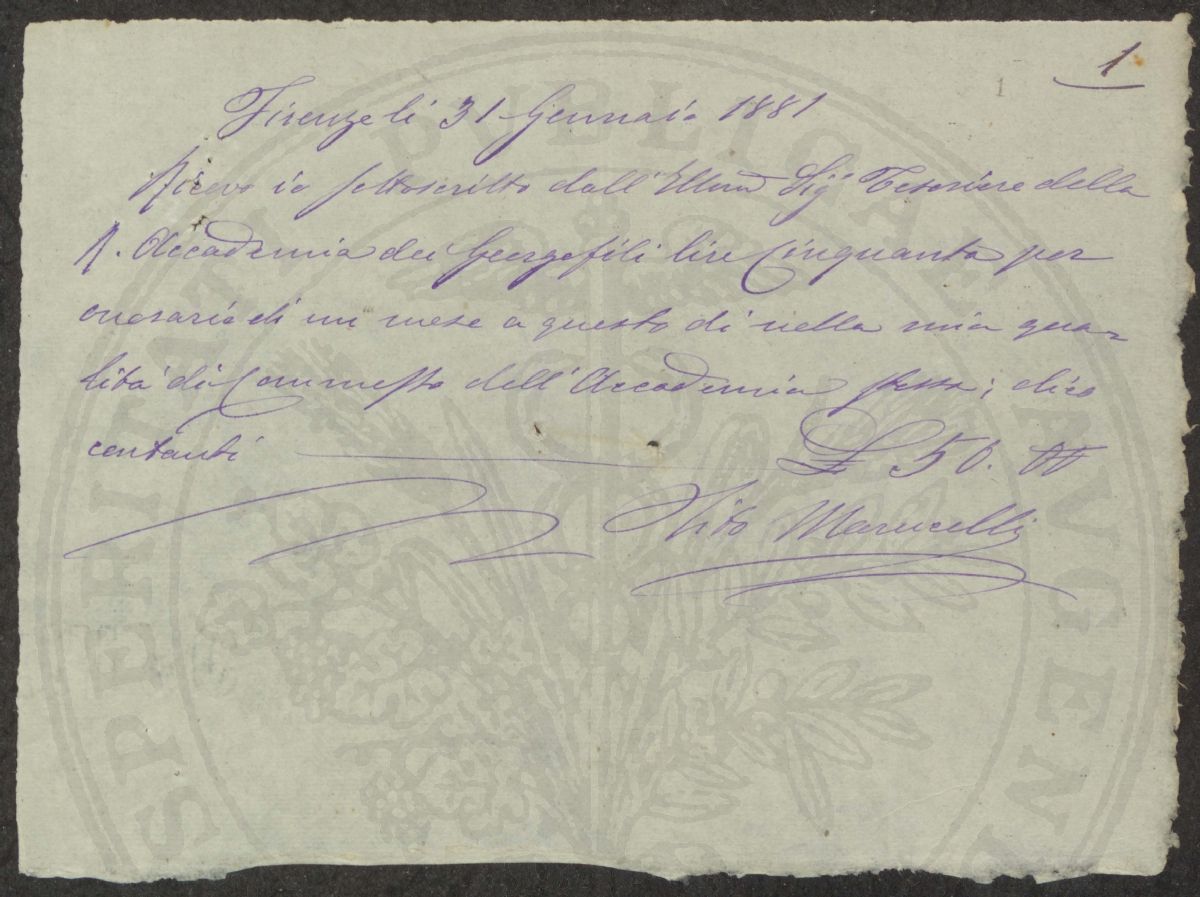 1
1
Firenze li 31 Gennaio 1881
Ricevo io sottoscritto dall' Illmo Sigr Tesoriere della
R. Accademia dei Georgofili lire Cinquanta per
onorario di un mese a questo dì nella mia qua-
lità di Commesso dell' Accademia stessa; dico
contanti £ 50. 00
Vito Marucelli
PROSPERITATI PUBLICAE AVGENDAE